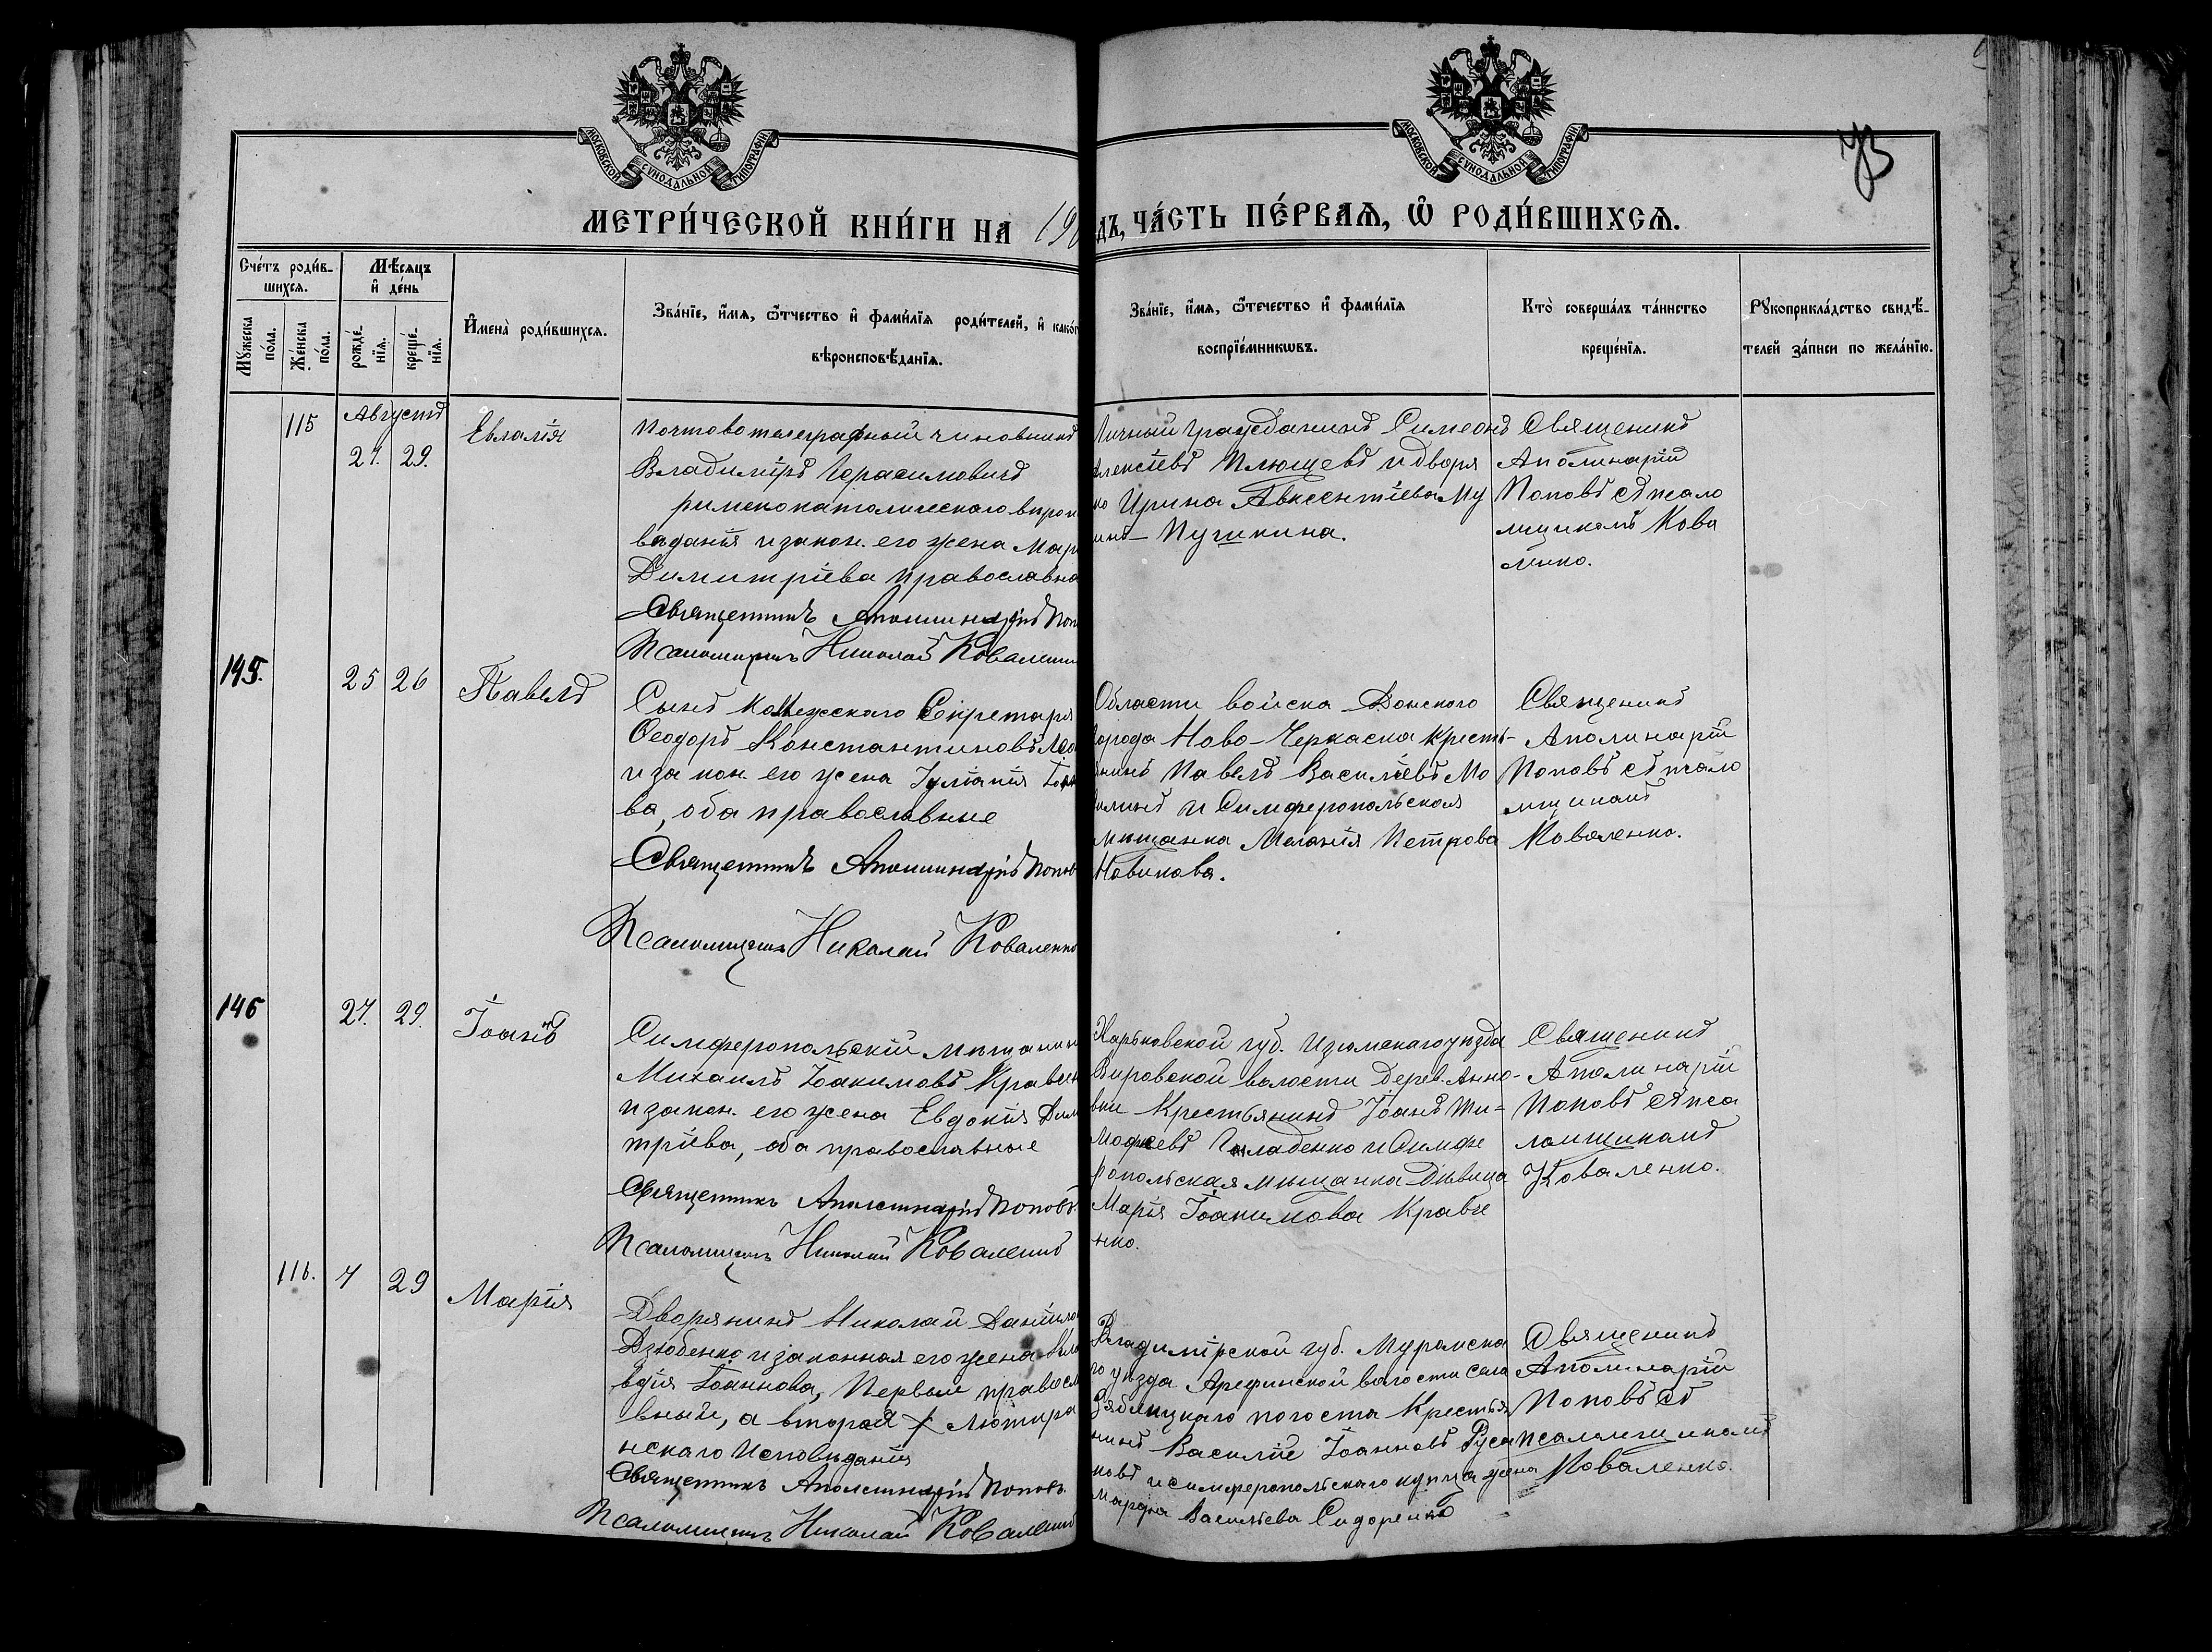 МОСКОВСКОЙ СѴНОДАЛЬНОЙ ТИПОГРАФІИ
МОСКОВСКОЙ СѴНОДАЛЬНОЙ ТИПОГРАФІИ
МЕТРИ́ЧЕСКОЙ КНИ́ГИ НА 190
ДЪ, ЧА́СТЬ ПЕ́РВАѦ, Ѽ РОДИ́ВШИХСѦ.
Сче́тъ роди́в-
шихсѧ.
Мѣ́сѧцъ
и҆ де́нь
Мꙋ́жеска
по́ла.
Же́нска
по́ла.
рожде́-
нїѧ.
креще́-
нїѧ.
И҆мена̀ роди́вшихсѧ.
Зва́нїе, и҆́мѧ, ѻ҆́тчество и҆ фами́лїѧ роди́телей, и҆ како́г
вѣроисповѣ́данїѧ.
Зва́нїе, и҆́мѧ, ѻ҆те́чество и҆ фами́лїѧ
воспрїе́мникѡвъ.
Кто̀ соверша́лъ та́инство
креще́нїѧ.
Рꙋкоприкла́дство свидѣ́-
телей за́писи по жела́нїю.
115
Августъ
27. 29.
Евлалія
Почтово телеграфный чиновникъ
Владиміръ Герасимовичъ
римско католическаго вирои
ваданія и закон. его жена Мар
Димитріева православна
Священникъ Аполинарій Поп
Псаломщикъ Николай Коваленко
Личный гражданинъ Симеонъ
Алексіевъ Плющевъ и дворя
ка Ирина Авксентіева Му
ина-Пушкина.
Священикъ
Аполинарій
Поповъ съ псало
мщикомъ Кова
ленко.
145.
25 26
Павелъ
Сынъ Коллежскаго Секретаря
Ѳеодоръ Константиновъ
и закон. его жена Іуліанія
ва, оба православные
Священникъ Аполинарій Попов
Псаломщикъ Николай Коваленко
Области войска Донского
города Ново-Черкаска кресть-
янинъ Павелъ Василіевъ Мо
и Симферопольская
мѣщанка Меланія Петрова
Новикова.
Священикъ
Аполинарій
Поповъ съ псало
мщикомъ
Коваленко.
146
27. 29.
Іоаннъ
Симферопольскій мѣщанин
Михаилъ Іоакимовъ Кравчен
и закон. его жена Евдокія Дим
тріева, оба православные
Священникъ Аполинарій Поповъ.
Псаломщикъ Николай Коваленко
Харьковской губ. Изюмскаго уѣзда
волости Дерев. Анно-
вки Крестьянинъ Іоанъ Ти-
мофеевъ Гладенко и Симфе
ропольская мѣщанка Дѣвица
Марія Іоакимова Кравче
нко.
Священикъ
Аполинарій
Поповъ съ пса
ломщикомъ
Коваленко.
116.
7
29
Марія
Дворянинъ Николай Данило
Дзюбенко и законная его жена
вдія Іоаннова, Первый правосл
вный, а вторая Лютера
нскаго Исповѣданія
Священникъ Аполинарій Поповъ
Псаломщикъ Николай Коваленко
Владимірской губ. Муромска
го уѣзда Арефинской волости села
погоста Крестья
нинъ Василій Іоанновъ Руса
ковъ и симферопольскаго купца жена
Марфа Васильева Сидоренко
Священикъ
Аполинарій
Поповъ съ
псаломщикомъ
Коваленко.